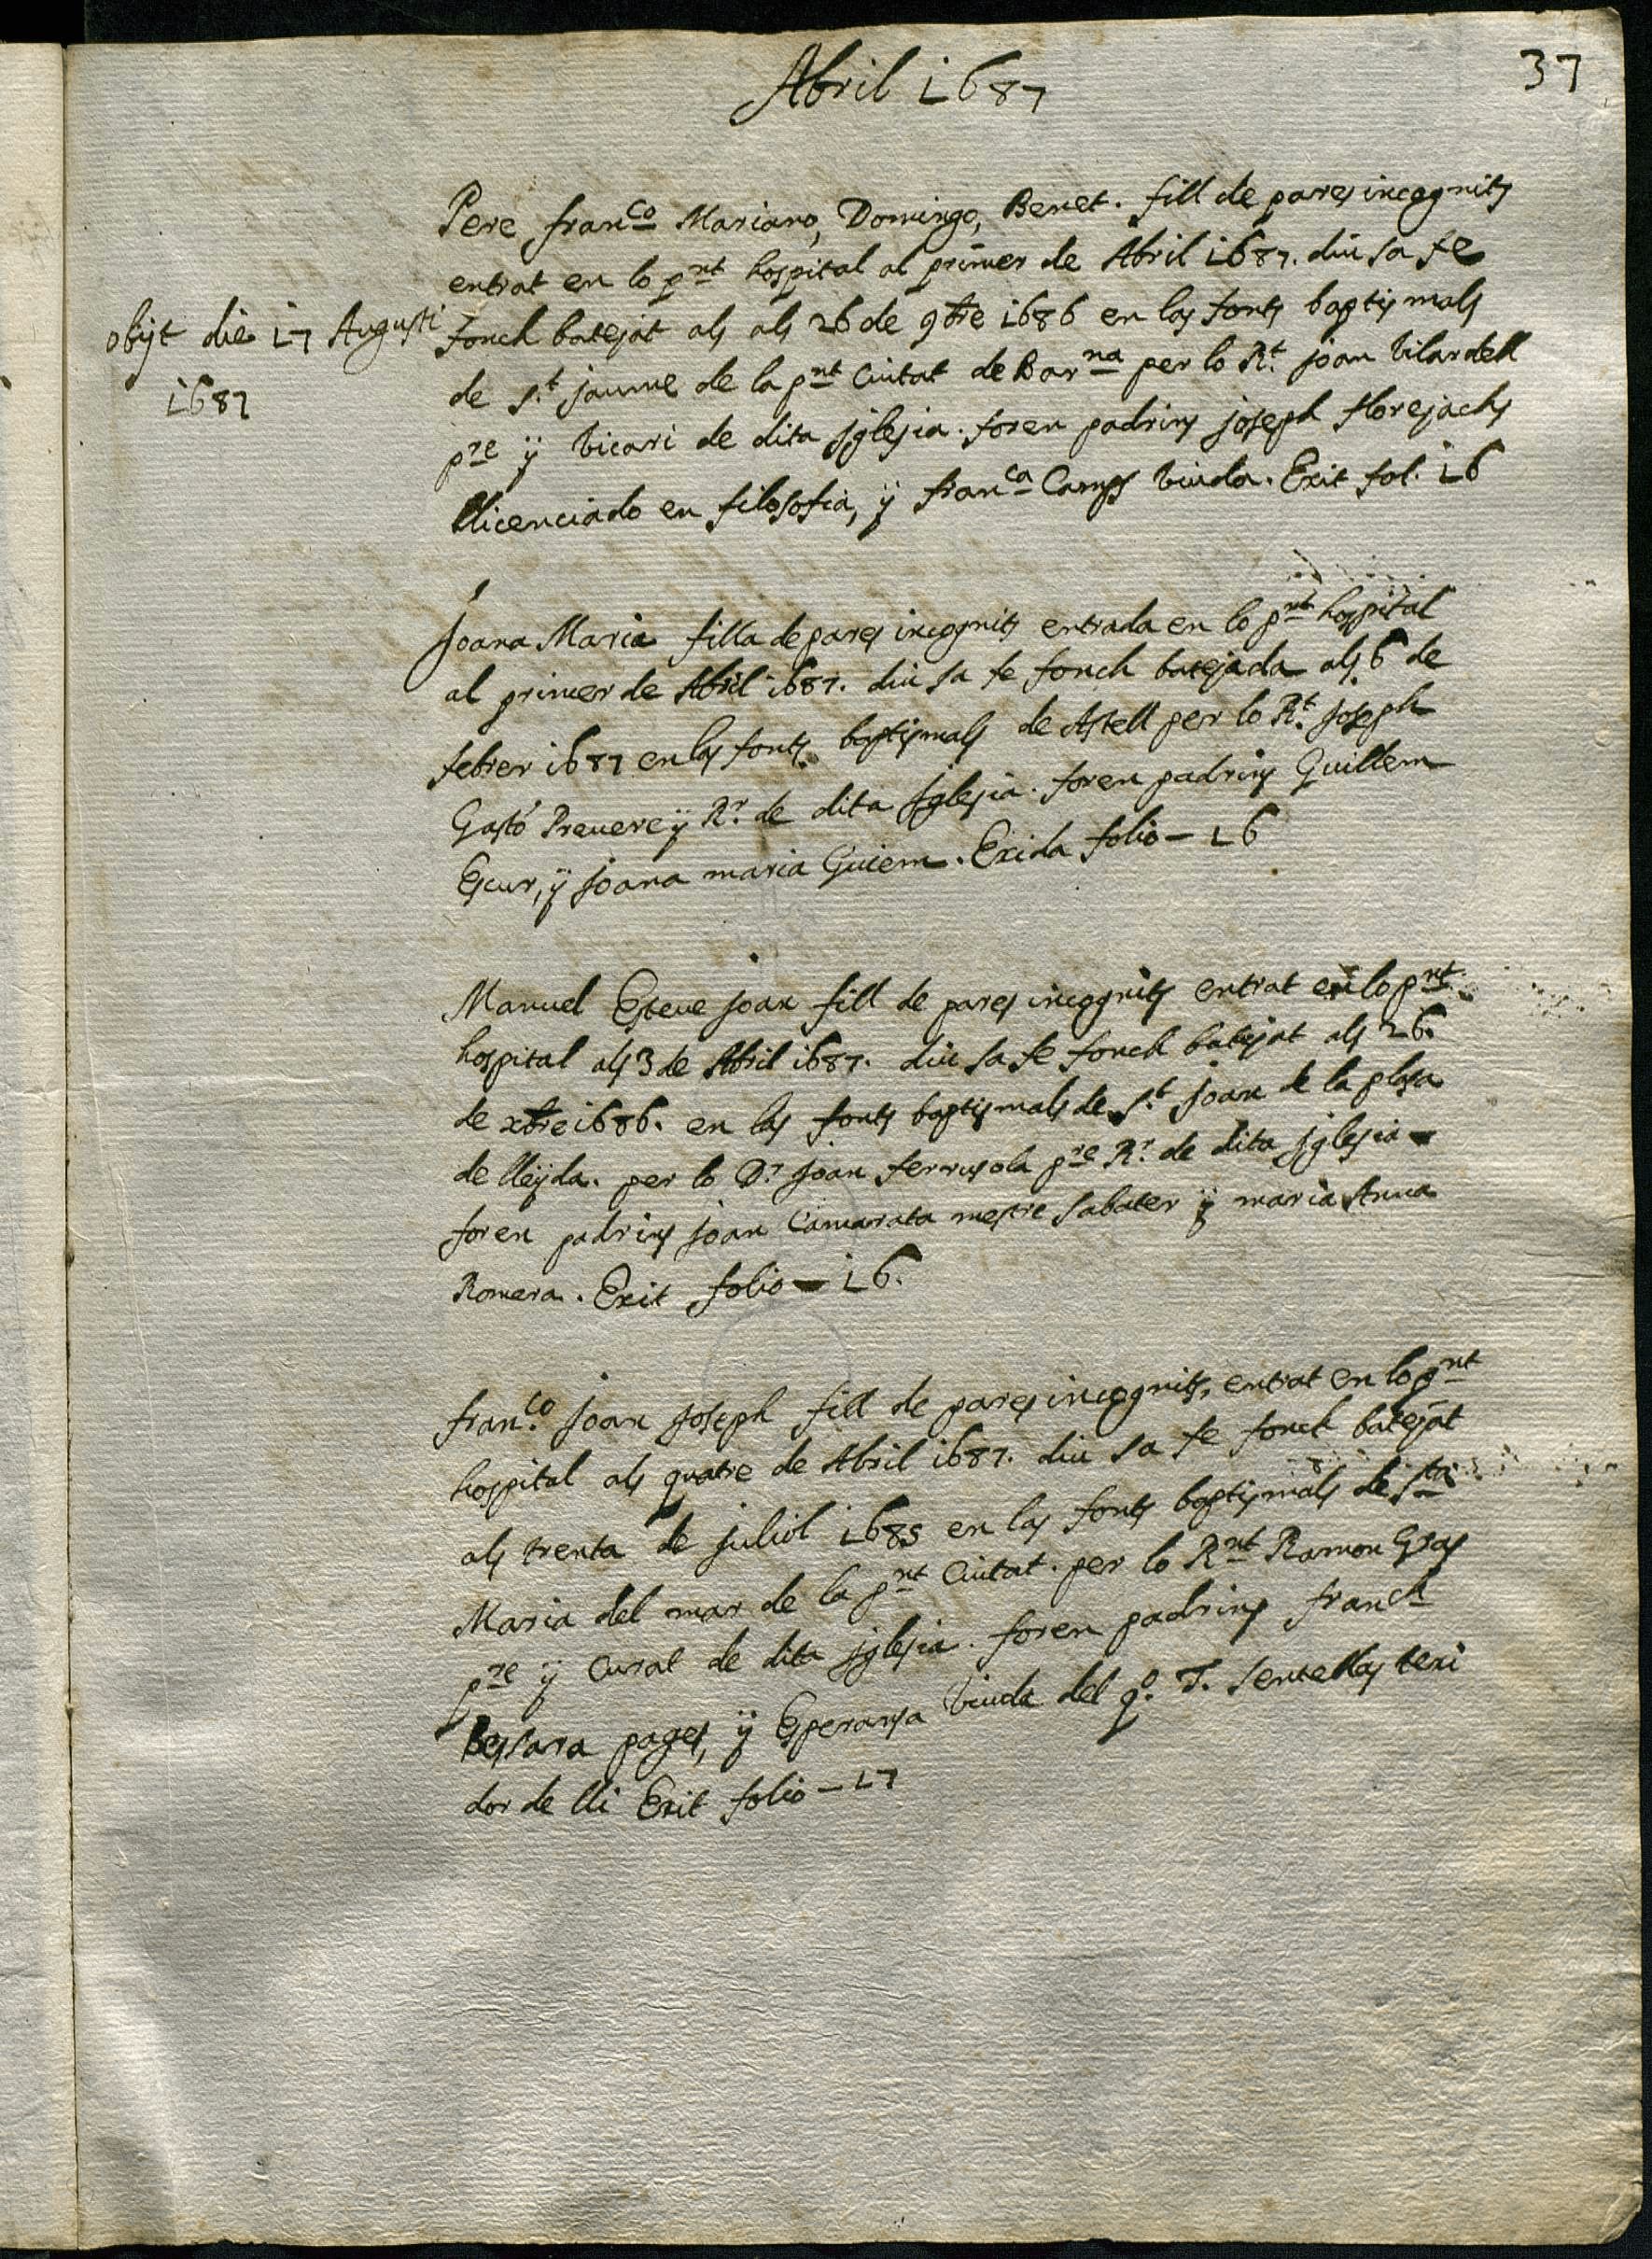 37
Abril 1687
Pere, fran.co Mariano, Domingo, Benet. fill de pares incognits
entrat en lo pnt hospital al primer de Abril 1687. diu sa fe
fonch batejat als als 26 de 9bre 1686 en las fonts baptismals
de s.t jaume de la pnt Ciutat de Barna per lo R.t joan Vilardell
pre ÿ Vicari de dita Iglesia. foren padrins joseph florejachs
llicenciado en filosofia, ÿ franca Camps Viuda. Exit fol. 16
obijt die 17 Augusti
1687
Joana Maria filla de pares incognits entrada en lo pnt hospital
al primer de Abril 1687. diu sa fe fonch batejada als 6 de
febrer 1687 en las fonts baptismals de Astell per lo R.t Joseph
Gastó Prevere ÿ R.r de dita Iglesia. foren padrins Guillem
Escur, ÿ Joana maria Guiem. Exida folio - 16
Manuel Esteve joan fill de pares incognits entrat en lo pnt
hospital als 3 de Abril 1687. diu sa fe fonch batejat als 26.
de xbre 1686. en las fonts baptismals de s.t Joan de la plasa
de lleÿda. per lo D.r Joan ferrusola pre R.r de dita Iglesia -
foren padrins joan Camarata mestre sabater ÿ maria Anna
Romera. Exit folio - 16.
fran.co Joan Joseph fill de pares incognits, entrat en lo pnt
hospital als quatre de Abril 1687. diu sa fe fonch batejat
als trenta de juliol 1685 en las fonts baptismals de sta
Maria del mar de la pnt Ciutat. per lo Rnt Ramon Gras
pre ÿ Curat de dita Iglesia. foren padrins franch
Bessara pages, ÿ Esperansa Viuda del q.o T. Sentellas texi
dor de lli Exit folio - 17